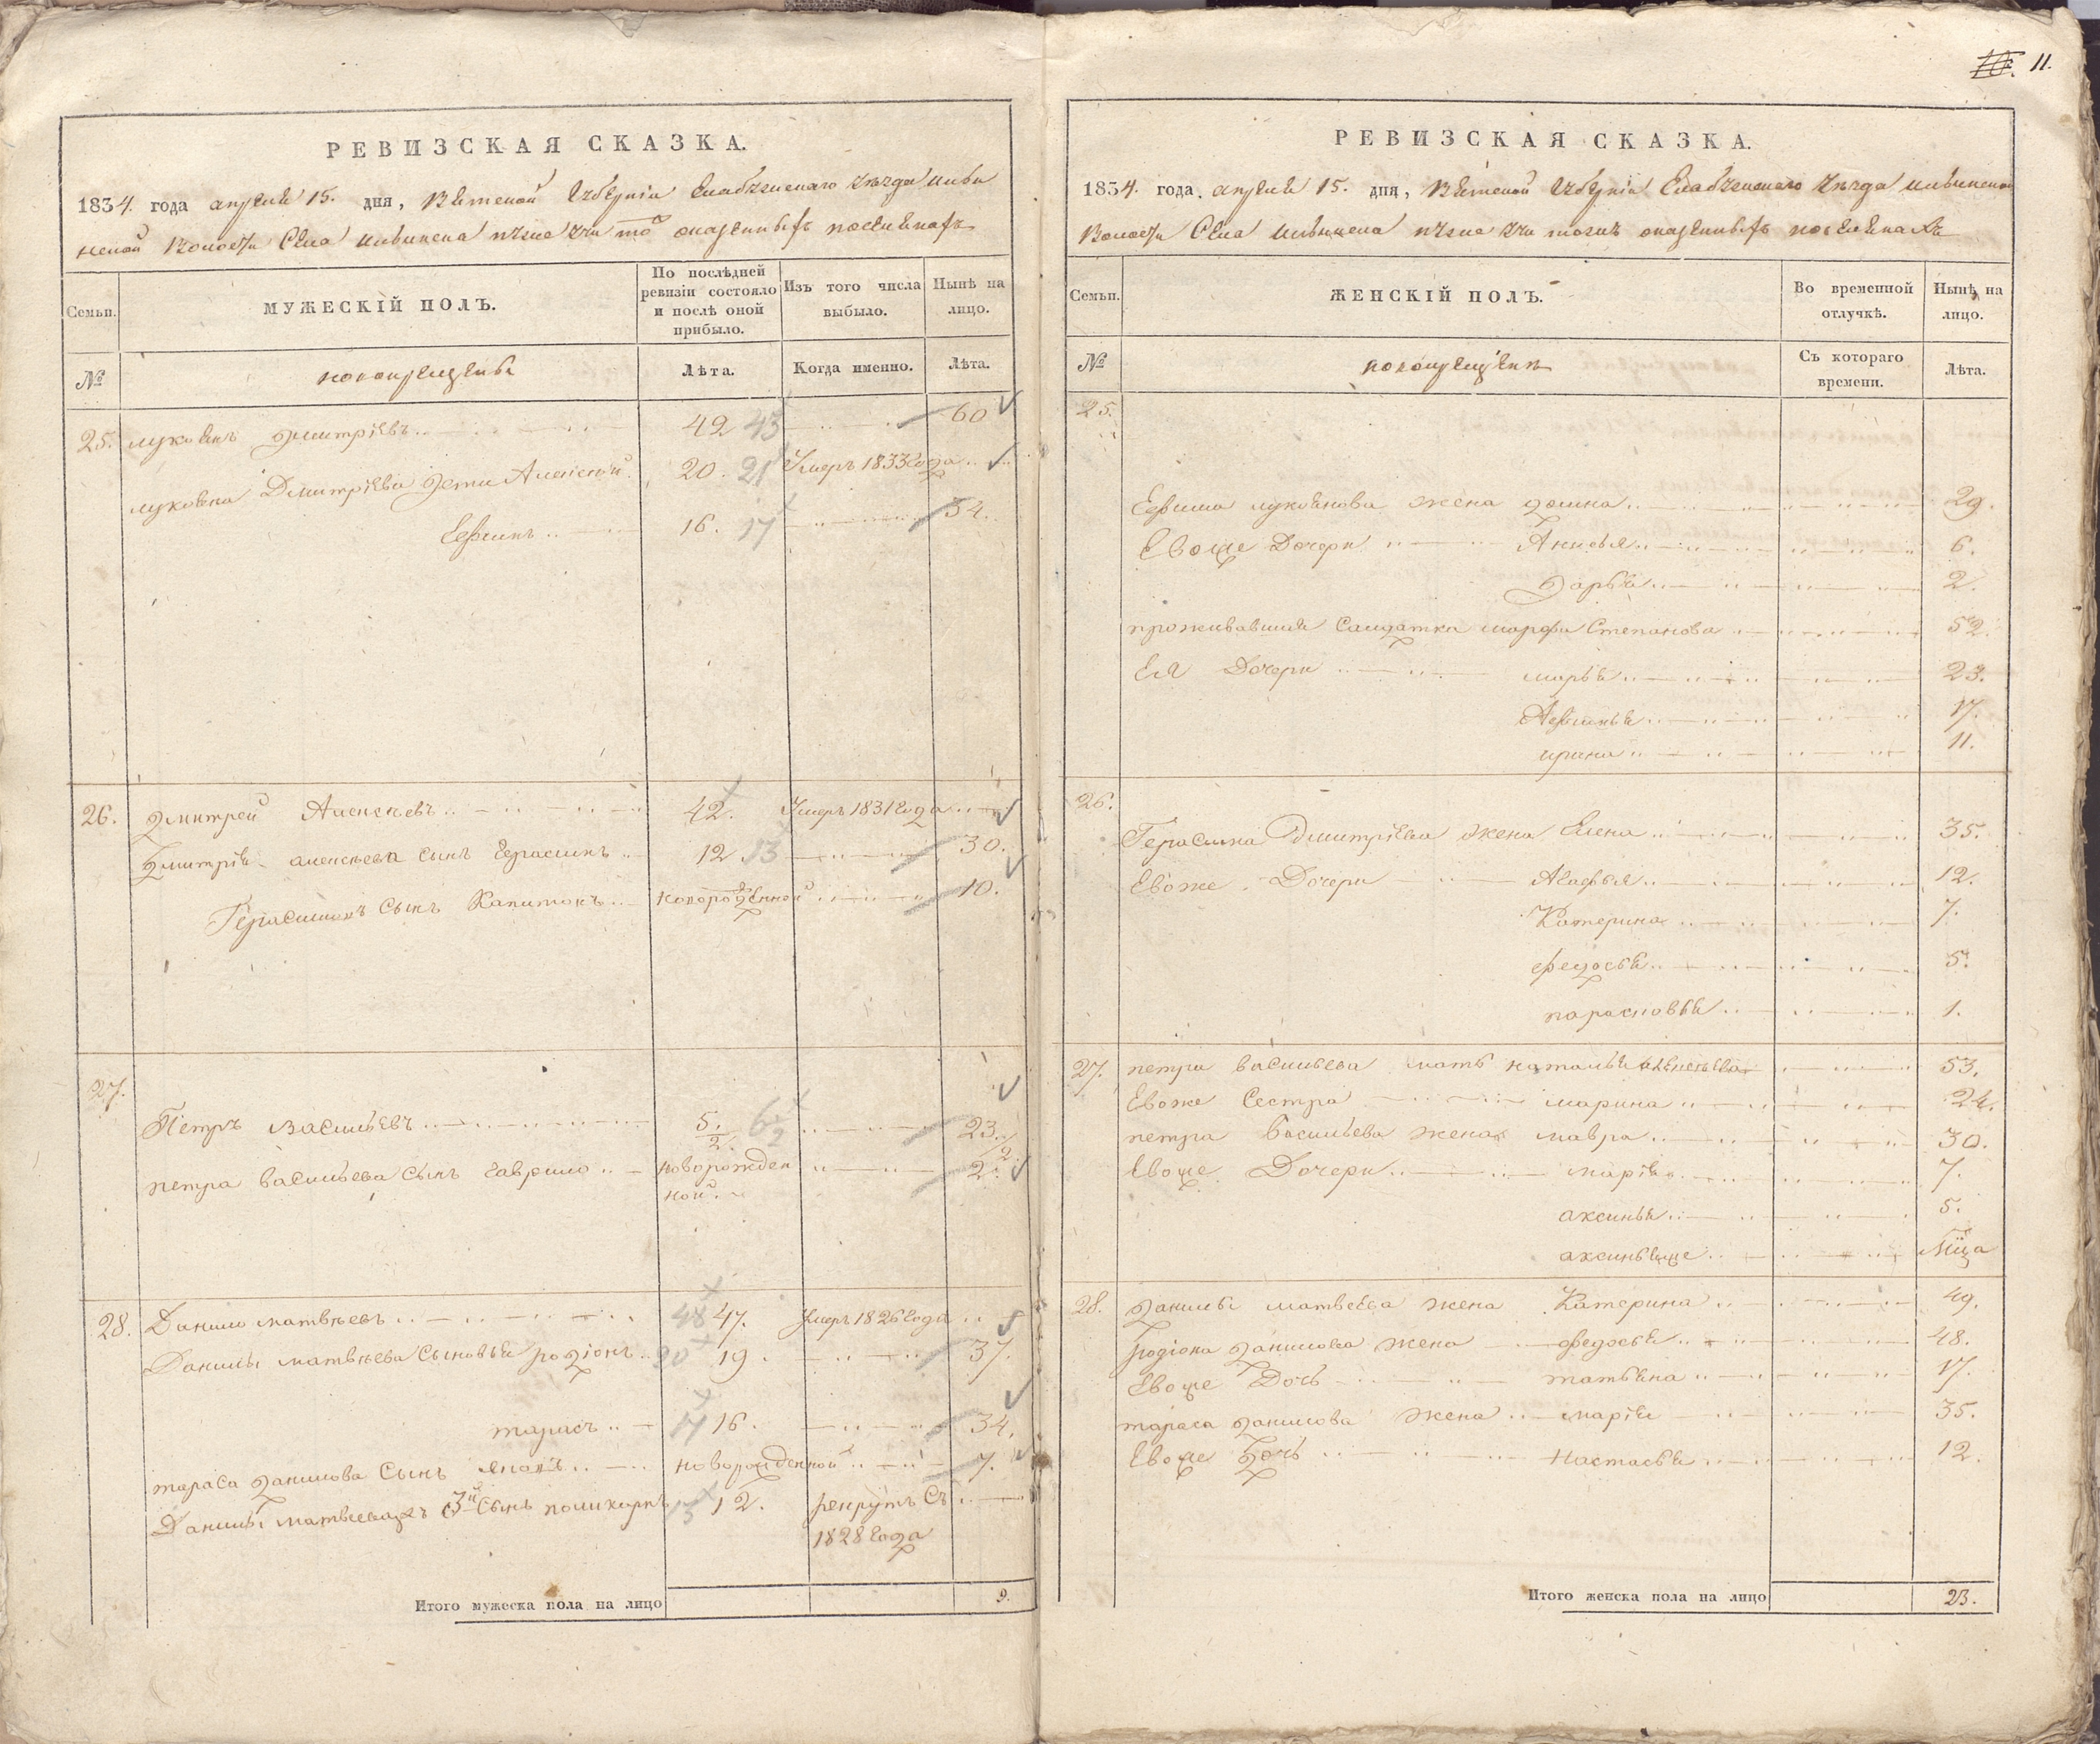 РЕВИЗСКАЯ СКАЗКА.
1834. года апреля 15. дня, Вятской Губернiи Елабужскаго уезда
Волости Села оказенныхъ поселянахъ
Семьи.
МУЖЕСКIЙ ПОЛЪ.
По послѣдней ревизiи состояло и послѣ оной прибыло.
Изъ того числа выбыло.
Нынѣ на лицо.
№
новокрещены
Лѣта.
Когда именно.
Лѣта.
25. лукоянъ дмитрiевъ 42 43 60
лукояна Дмитрiева дети Алексей 20. 21 Умеръ 1833 Года
Ефимъ 16. 17 34.
26. дмитрей Алексѣевъ 42. Умеръ 1831 Года
дмитрiя алексѣева сынъ Герасимъ 12 13 30.
Герасимовъ сынъ Капитонъ новорожденной 10.
27.
Петръ васильевъ 5. 1/2. 6 1/2 23. 1/2
петра васильева сынъ гаврило новорожден 2.
ной.
28. Данило матвѣевъ 48 47. Умеръ 1826 Года
Данилы матвѣева сыновья родiонъ 20 19. 37.
тарасъ 17 16. 34.
тараса данилова сынъ новорожденной 7.
Данилы матвеева 3й сынъ поликарпъ 13 12. рекрутъ съ
1828 Года
Итого мужеска пола на лицо 9.
10. 11.
РЕВИЗСКАЯ СКАЗКА.
1834. года. апреля 15. дня, Вятской Губернiи Елабужскаго уезда
Волости Села оказенныхъ поселянахъ
Семьи.
ЖЕНСКIЙ ПОЛЪ.
Во временной отлучкѣ.
Нынѣ на лицо.
№
новокрещенъ
Съ котораго времени.
Лѣта.
25.
Ефима лукоянова жена домна 29.
Евоже Дочери Анисья 6.
дарья 2.
проживавшая Салдатка марфа Степанова 52.
Ея Дочери марья 23.
Афимья 17.
ирина 11.
26.
Герасима Дмитрiева жена Елена 35.
Евоже Дочери Агафья 12.
Катерина 7.
федосья 5.
парасковья 1.
27. петра васильева мать наталья алексѣева 53.
Евоже Сестра марина 24.
петра васильева жена мавра 30.
Евоже Дочери марiя 7.
аксинья 5.
аксинья же Мца
28. данилы матвеева жена Катерина 49.
родiона данилова жена федосья 48.
Евоже Дочь татьяна 17.
тараса данилова жена марiя 35.
Евоже дочь настасья 12.
Итого женска пола на лицо 23.